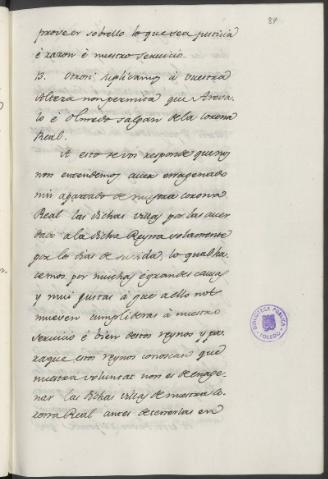 39
proveer sobrello lo que sea justicia
é razon é nuestro servicio.
13. Otrosi suplicamos á vuestra
Alteza non permita que Areva-
lo é Olmedo salgan de la corona
Real.
A esto se vos responde que nos
non entendemos aver enagenado
nin apartado de nuestra corona
Real las dichas villas por las aver
dado a la dicha Reyna solamente
por los dias de su vida, lo qual ha-
cemos por muchas é grandes causas
y mui justas á que a ello nos
mueven cumplideras á nuestro
servicio é bien destos reynos y pa-
ra que estos reynos conoscan que
nuestra voluntat non es de enage-
nar las dichas villas de nuestra co-
rona Real antes de tenerlas en
BIBLIOTECA PUBLICA
TOLEDO